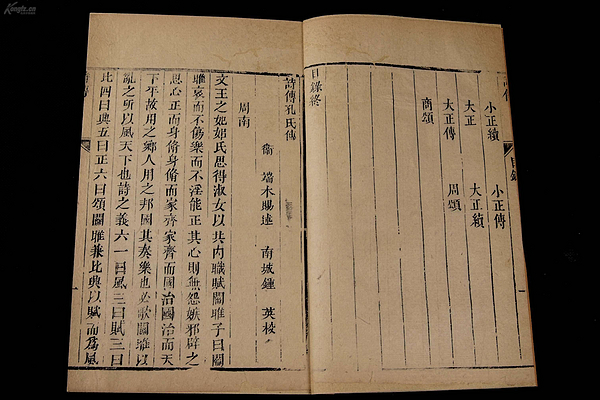 Kongfz.cn
小正續　小正傳
大正　大正續
大正傳　周頌
商頌
目錄終
詩傳孔氏傳
衞　端木賜述　南城鍾　英校
周南
文王之妃姒氏思得淑女以共內職賦關雎子曰關
雎哀而不傷樂而不淫能正其心則無怨嫉邪辟之
思心正而身脩身脩而家齊家齊而國治國治而天
下平故用之鄉人用之邦國其奏樂也必歌關雎以
亂之所以風天下也詩之義六一曰風二曰賦三曰
比四曰興五曰正六曰頌關雎兼比興以賦而爲風